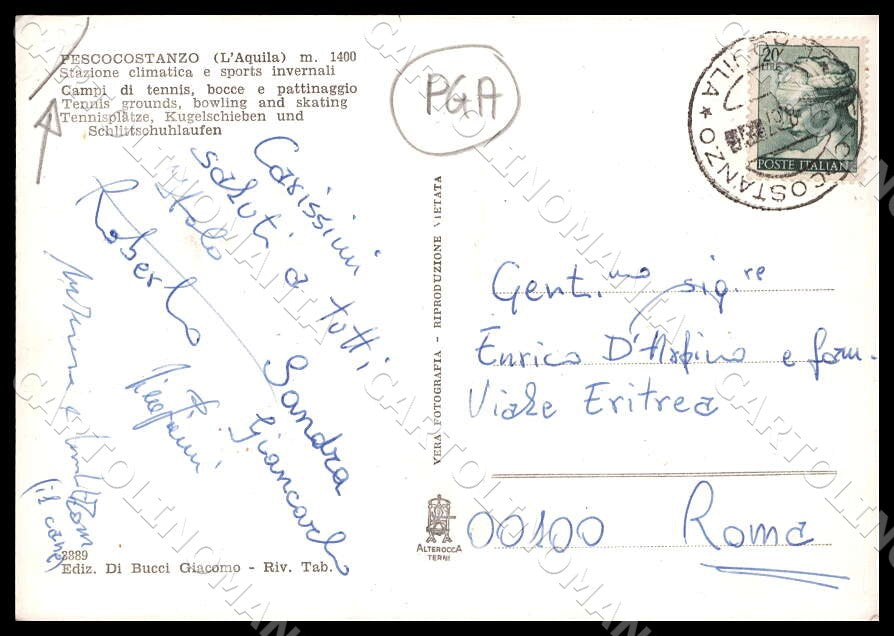 PESCOCOSTANZO (L'Aquila) m. 1400
Stazione climatica e sports invernali
Campi di tennis, bocce e pattinaggio
Tennis grounds, bowling and skating
Tennisplätze, Kugelschieben und
Schlittschuhlaufen
PGA
Carissimi
saluti a tutti,
Italo
Sandra
Roberto
Giancarlo
(il cane)
3889
Ediz. Di Bucci Giacomo - Riv. Tab.
VERA FOTOGRAFIA - RIPRODUZIONE VIETATA
ALTEROCCA
TERNI
20
LIRE
POSTE ITALIANE
PESCOCOSTANZO ★ L'AQUILA
Gent.mo sig.re
Enrico D'Arpino e fam.
Viale Eritrea
00100 Roma
CARTOLINOMANIA